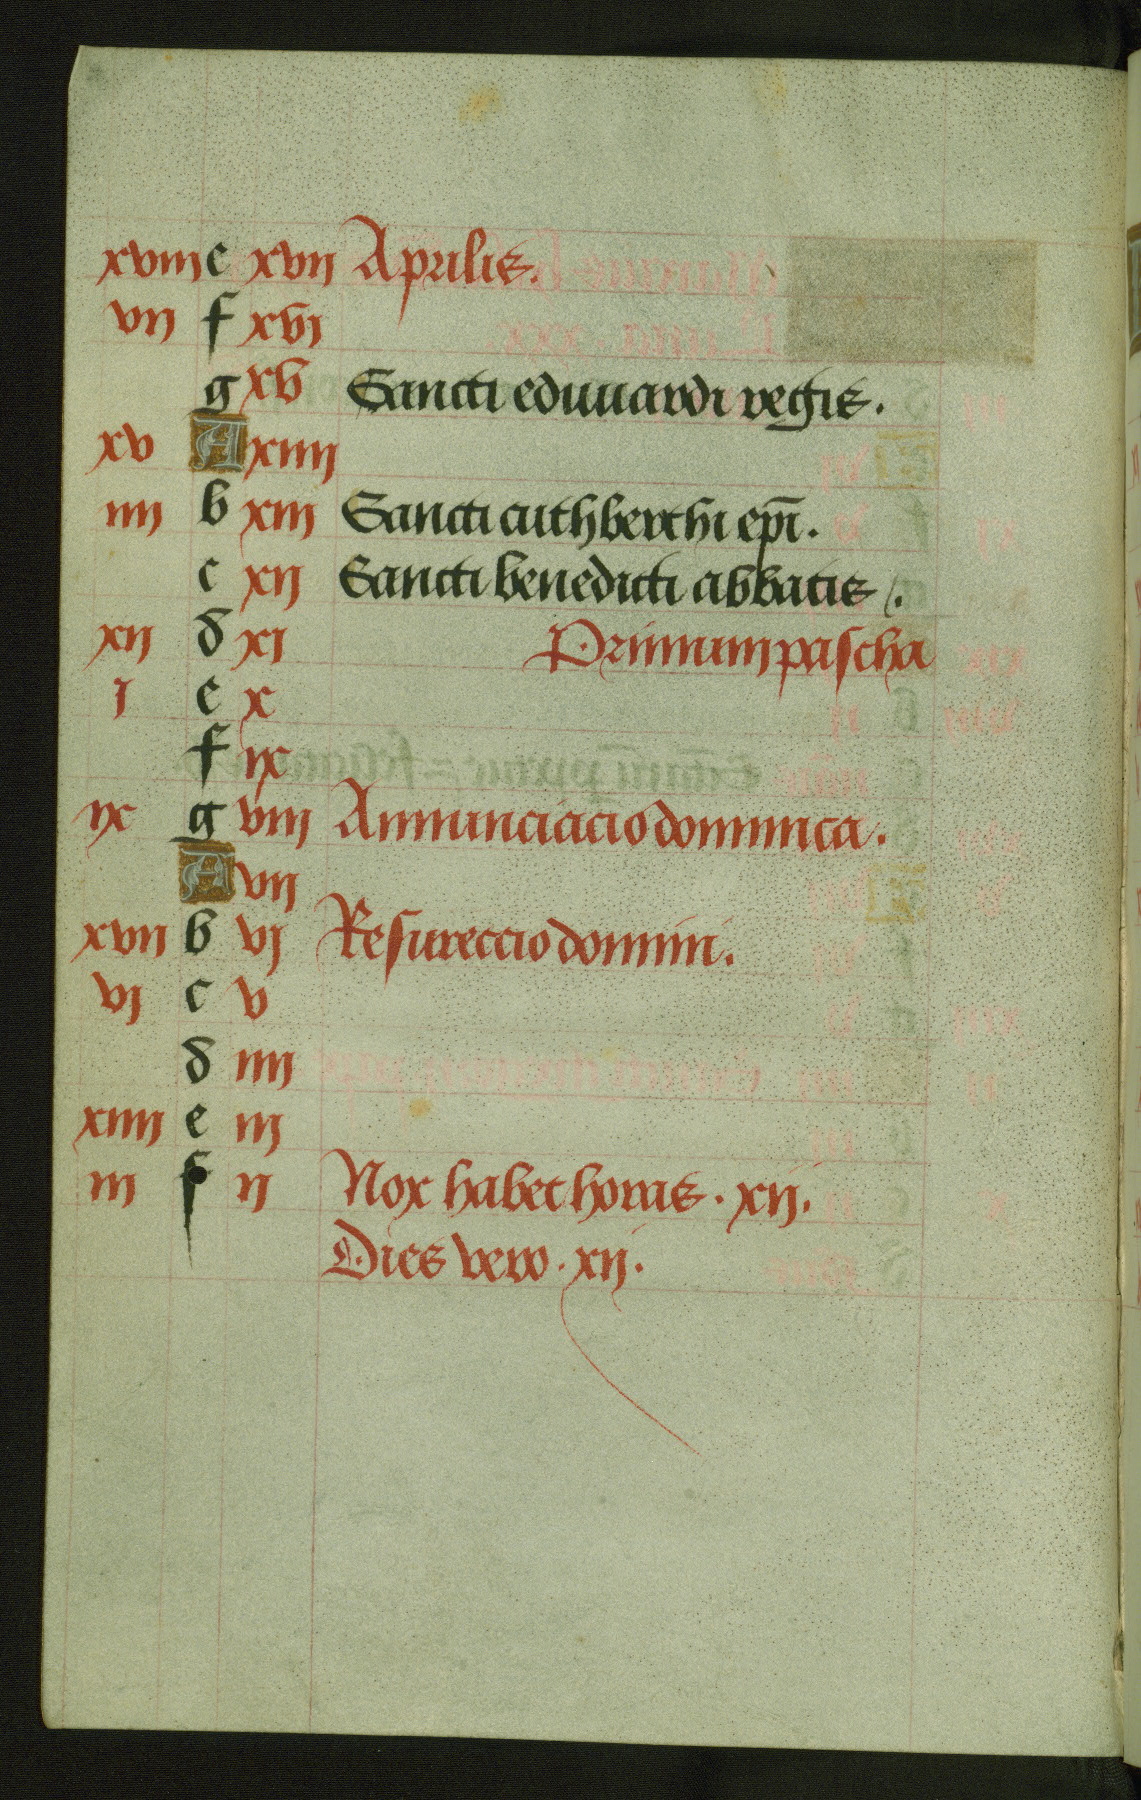 xviii e xvij Aprilis.
vij f xvj
g xv Sancti eduuardi regis.
xv A xiiij
iiij b xiij Sancti cuthberthi epi.
c xij Sancti benedicti abbatis.
xij d xi Primum pascha
i e x
f ix
ix g viij Annunciacio dominica.
A vij
xvij b vj Resureccio domini.
vj c v
d iiij
xiiij e iij
iij f ij Nox habet horas. xij.
Dies vero. xij.